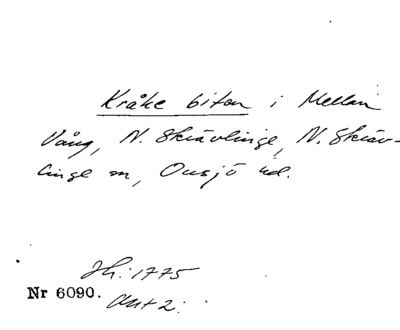 Kråke biton i Mellan
Vång, N. Skrävlinge, N. Skräv-
linge sn, Onsjö hd.
Jh: 1775
Nr 6090.
Akt 2: